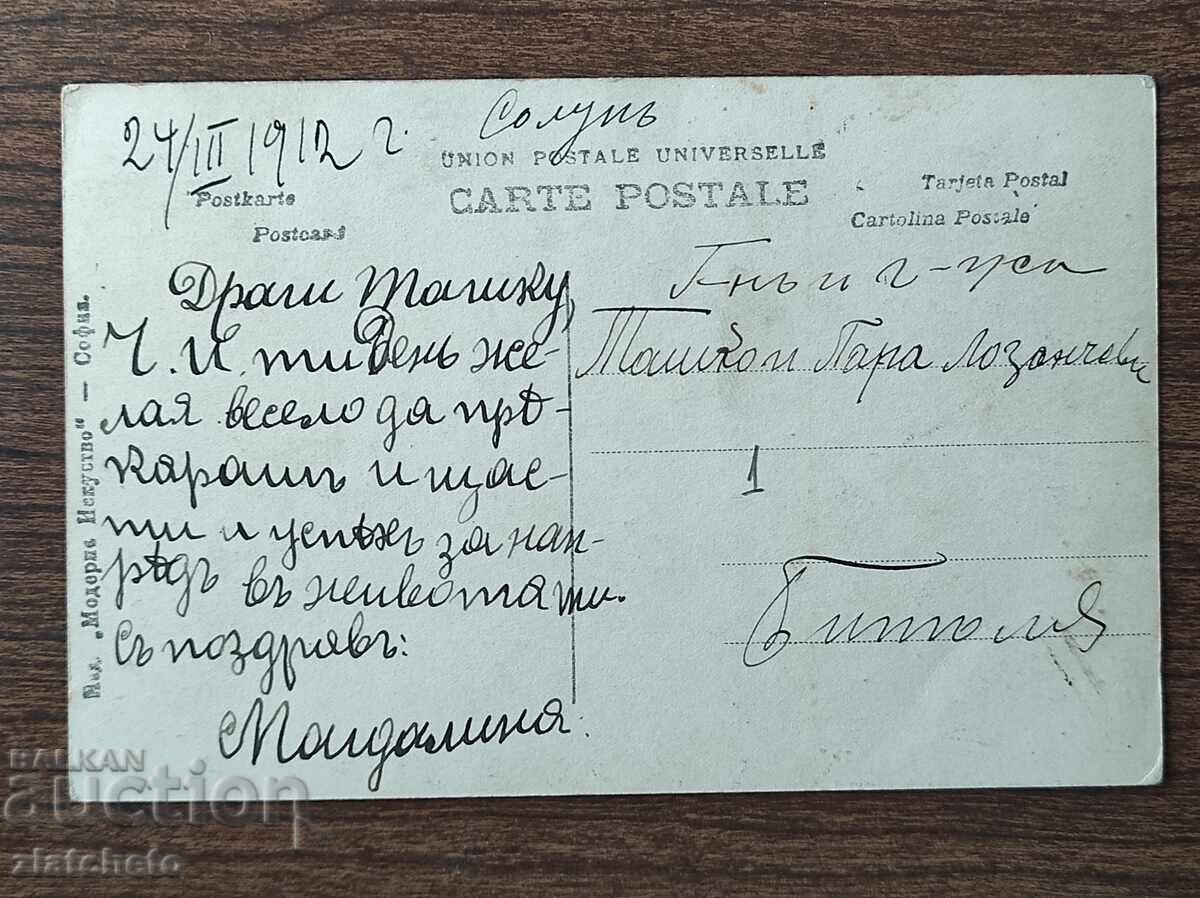 24/III 1912 г. Солунъ
UNION POSTALE UNIVERSELLE
CARTE POSTALE
Postkarte
Postcard
Tarjeta Postal
Cartolina Postale
Драги Ташку,
Ч. И. ти денъ же-
лая весело да прѣ-
карашъ и щас-
ти и успѣхъ за нап-
рѣдъ въ живота ти.
Съ поздравъ:
Магдалина.
г-жа
Ташко и Пара Лозанчеви
1
Битоля
Изд. „Модерно Искуство" — София.
BALKAN
auction
zlatcheto